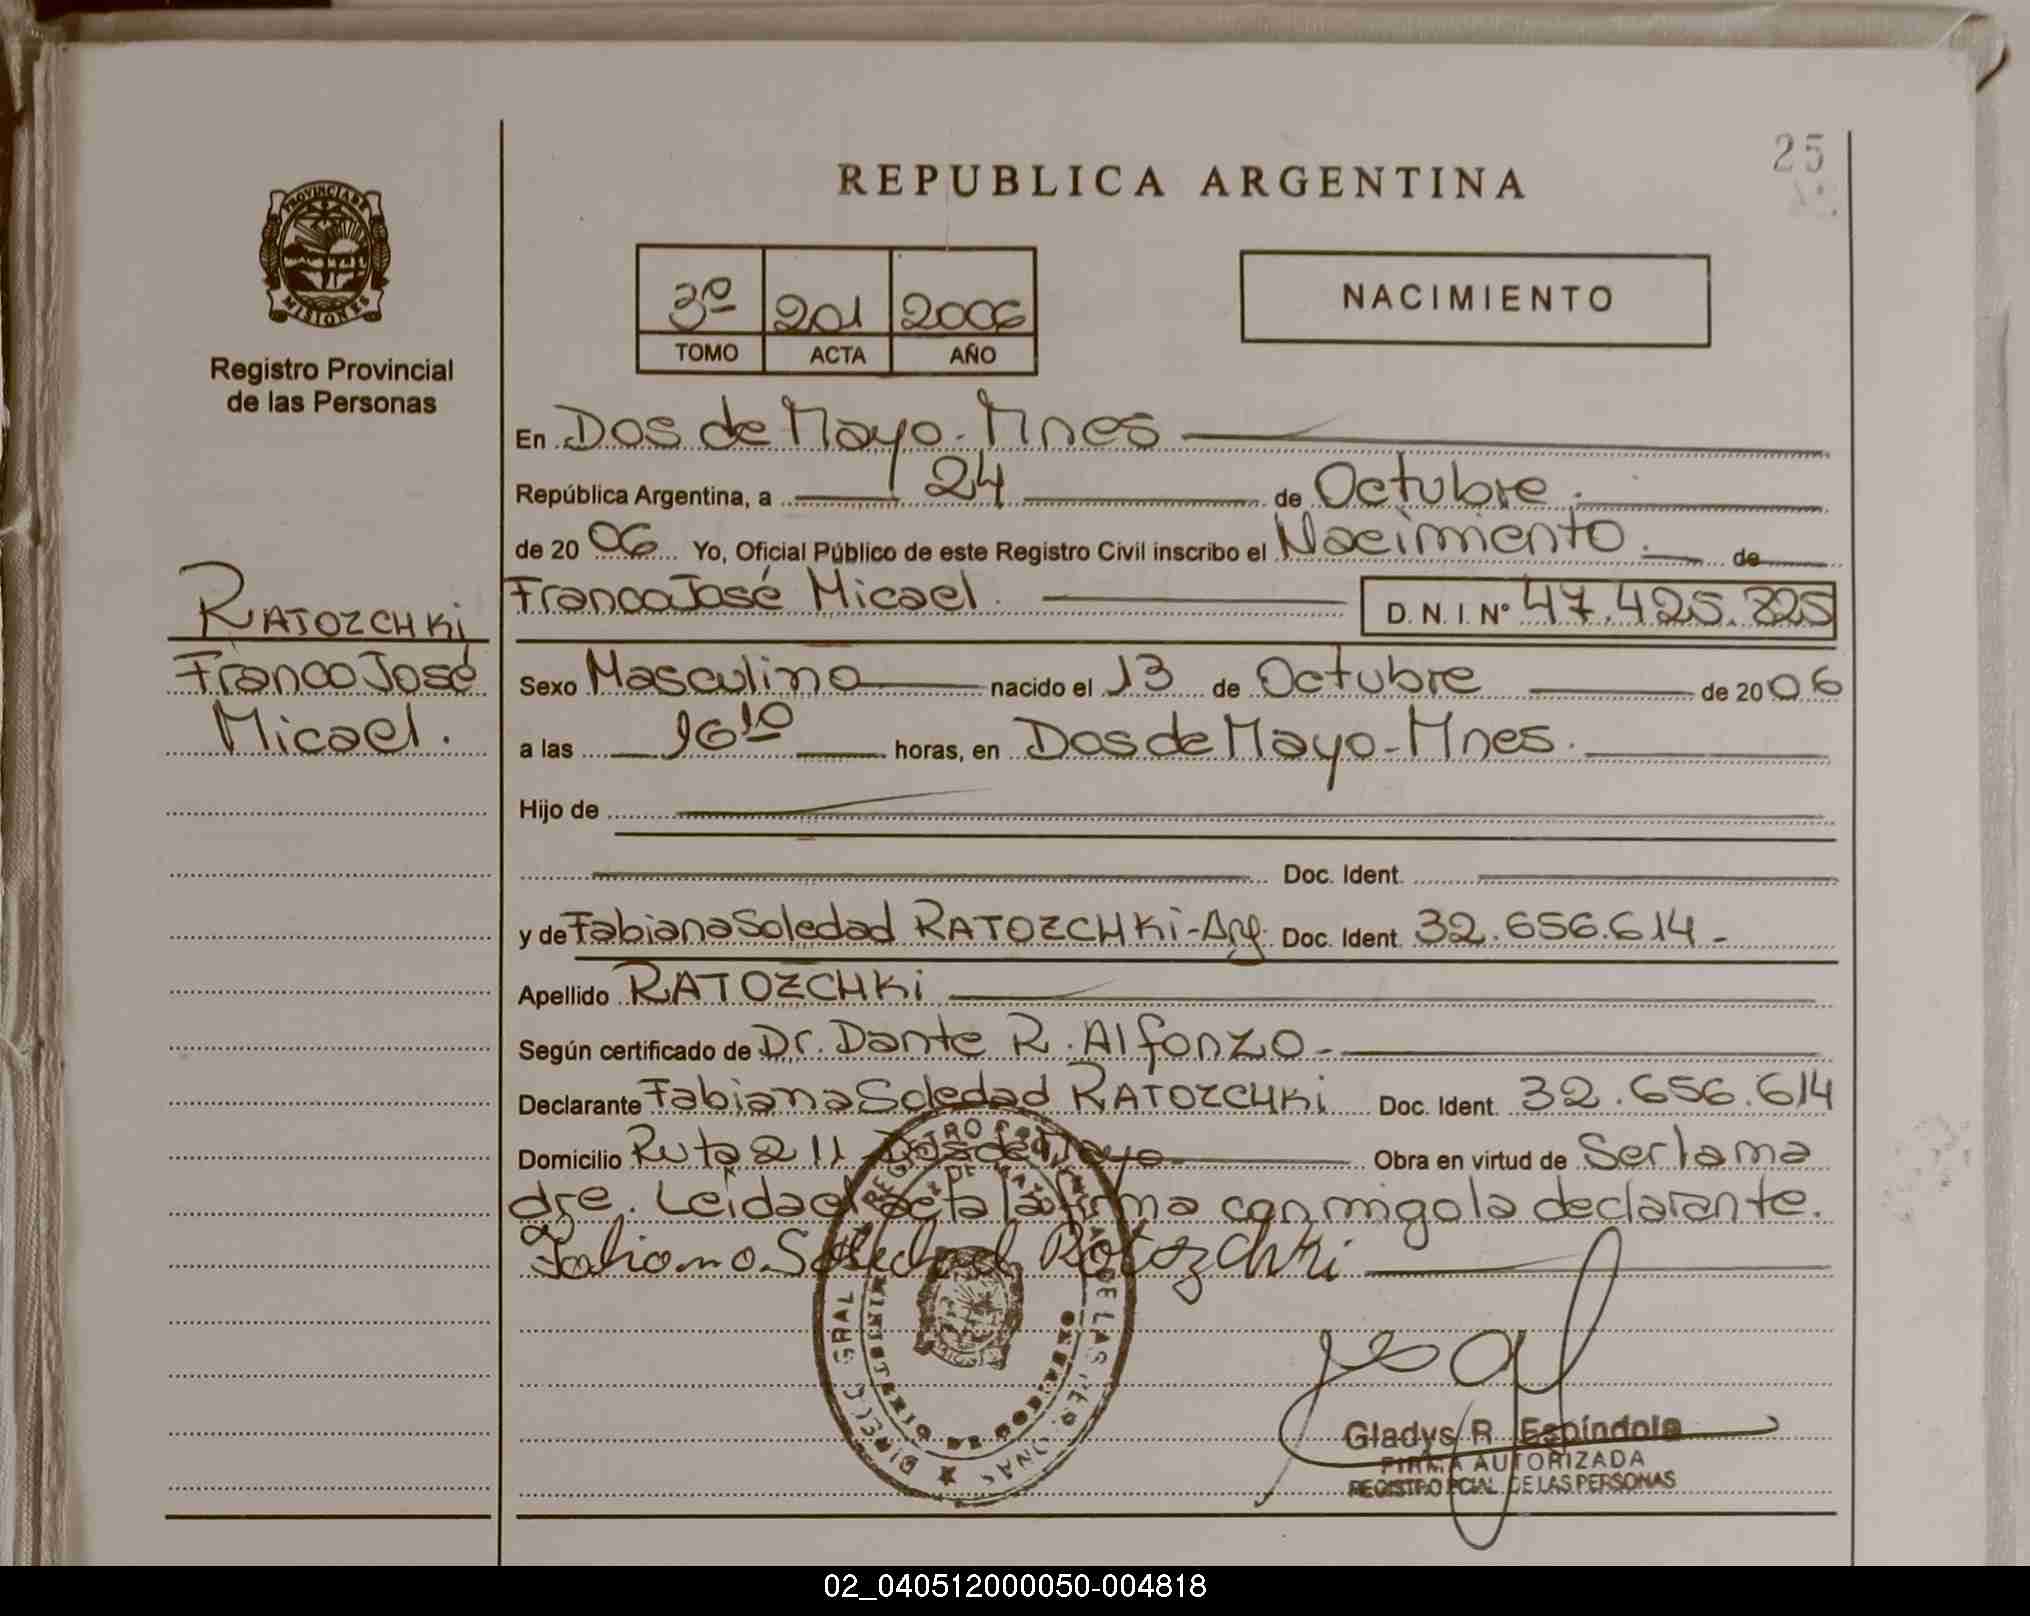 25
REPUBLICA ARGENTINA
PROVINCIA DE
MISIONES
Registro Provincial
de las Personas
3º 201 2006
TOMO ACTA AÑO
NACIMIENTO
RATOZCHKi
Franco José
Micael.
En Dos de Mayo - Mnes
República Argentina, a 24 de Octubre.
de 20 06 Yo, Oficial Público de este Registro Civil inscribo el Nacimiento. de
Franco José Micael. D. N. I. Nº 47.425.825
Sexo Masculino nacido el 13 de Octubre de 20 06
a las 16 10 horas, en Dos de Mayo - Mnes.
Hijo de
Doc. Ident.
y de Fabiana Soledad RATOZCHKi - Arg. Doc. Ident. 32.656.614 -
Apellido RATOZCHKi
Según certificado de Dr. Dante R. Alfonzo -
Declarante Fabiana Soledad RATOZCHKi Doc. Ident. 32.656.614
Domicilio Ruta 211 - Dos de Mayo Obra en virtud de Ser la ma
dre. Leida el acta la firma conmigo la declarante.
Fabiana Soledad Ratozchki
Gladys R. Espíndola
FIRMA AUTORIZADA
REGISTRO PCIAL. DE LAS PERSONAS
02_040512000050-004818